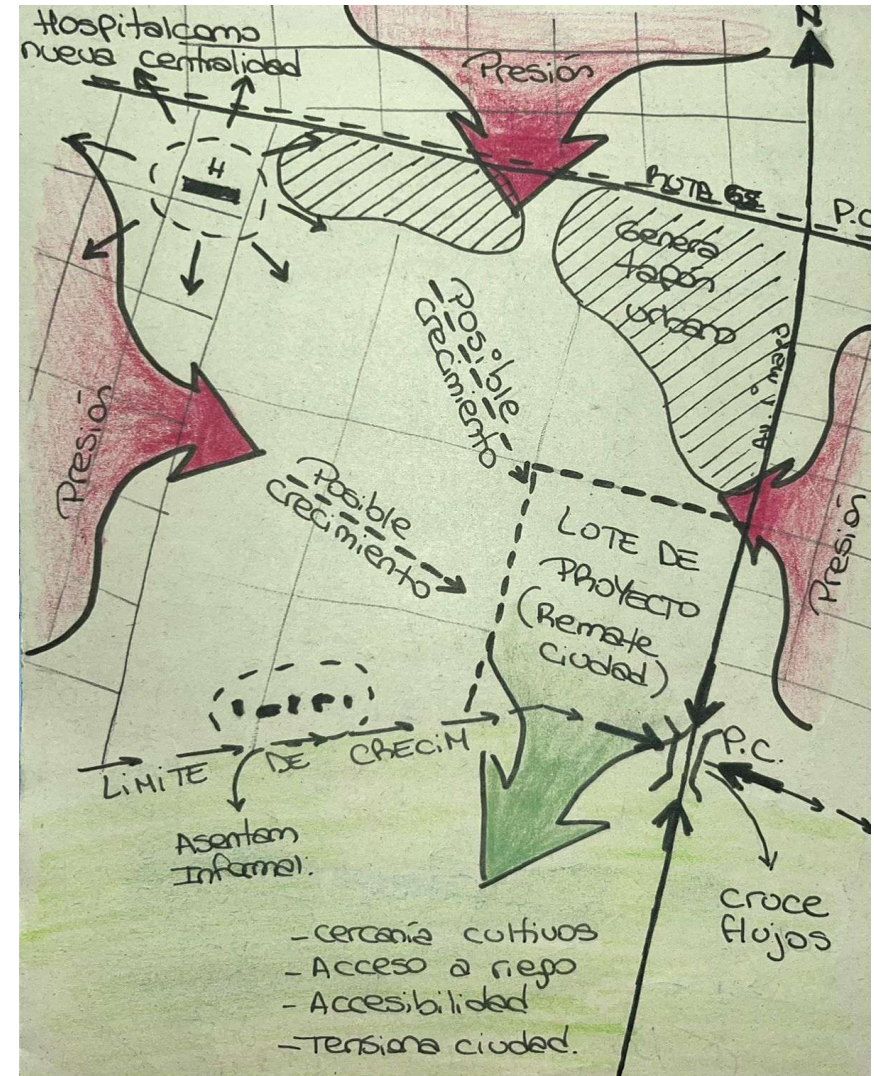 Hospital como
nueva centralidad
N
Presión
H
RUTA 68
P.C
Genera
tapón
urbano
Av. 1° mayo
Posible
crecimiento
Presión
Posible
crecimiento
LOTE DE
PROYECTO
(Remate
ciudad)
Presión
LIMITE DE CRECIM
P.C.
Asentam
Informal.
cruce
flujos
- cercanía cultivos
- Acceso a riego
- Accesibilidad
- Tensiona ciudad.